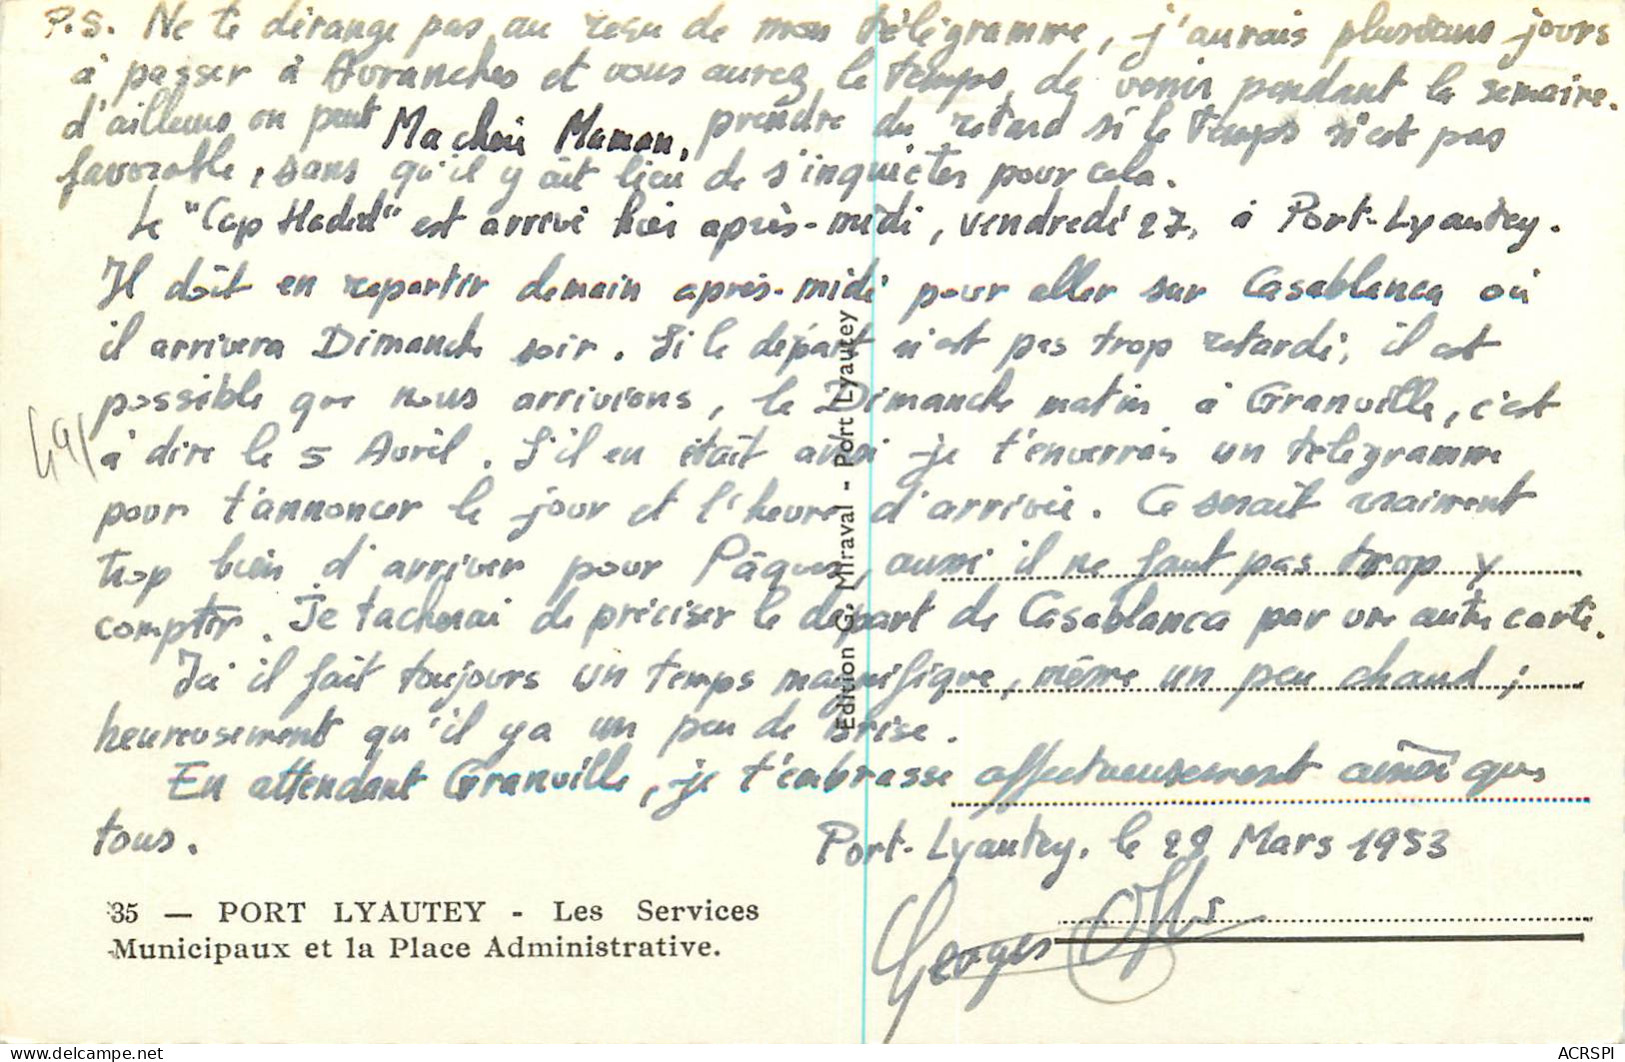 P.S. Ne te dérange pas au reçu de mon télégramme, j'aurais plusieurs jours
à passer à Avranches et vous aurez le temps de venir pendant la semaine.
d'ailleurs on peut prendre du retard si le temps n'est pas
favorable, sans qu'il y ait lieu de s'inquiéter pour cela.
Ma chère Maman,
Le "Cap Hadid" est arrivé hier après-midi, vendredi 27, à Port-Lyautey.
Il doit en repartir demain après-midi pour aller sur Casablanca où
il arrivera Dimanche soir. Si le départ n'est pas trop retardé, il est
possible que nous arrivions, le Dimanche matin à Granville, c'est
à dire le 5 Avril. S'il en était ainsi je t'enverrais un télégramme
pour t'annoncer le jour et l'heure d'arrivée. Ce serait vraiment
trop bien d'arriver pour Pâques, aussi il ne faut pas trop y
compter. Je tacherai de préciser le départ de Casablanca par une autre carte.
Ici il fait toujours un temps magnifique, même un peu chaud ;
heureusement qu'il y a un peu de brise.
En attendant Granville, je t'embrasse affectueusement ainsi que
tous.
Port-Lyautey, le 28 Mars 1953
Georges
35 — PORT LYAUTEY - Les Services
Municipaux et la Place Administrative.
Edition G. Miraval - Port Lyautey
ACRSPI